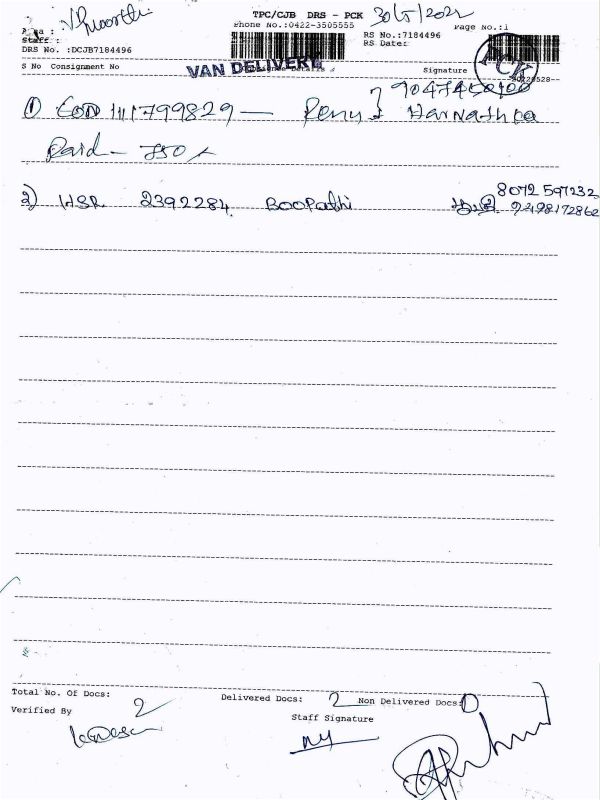 TPC/CJB DRS - PCK 30/5/2022
Phone No.:0422-3505555 Page No.:1
Area :
Staff :
RS No.:7184496
RS Date:
DRS No. :DCJB7184496
S No Consignment No Signature
VAN DELIVERY
PCK
① COD 111799829 — 9047450400
Paid - 750/-
2) HSR 2392284 BOOPathi 8072 597232
9498172862
Total No. Of Docs: 2 Delivered Docs: 2 Non Delivered Docs: 0
Verified By
Staff Signature